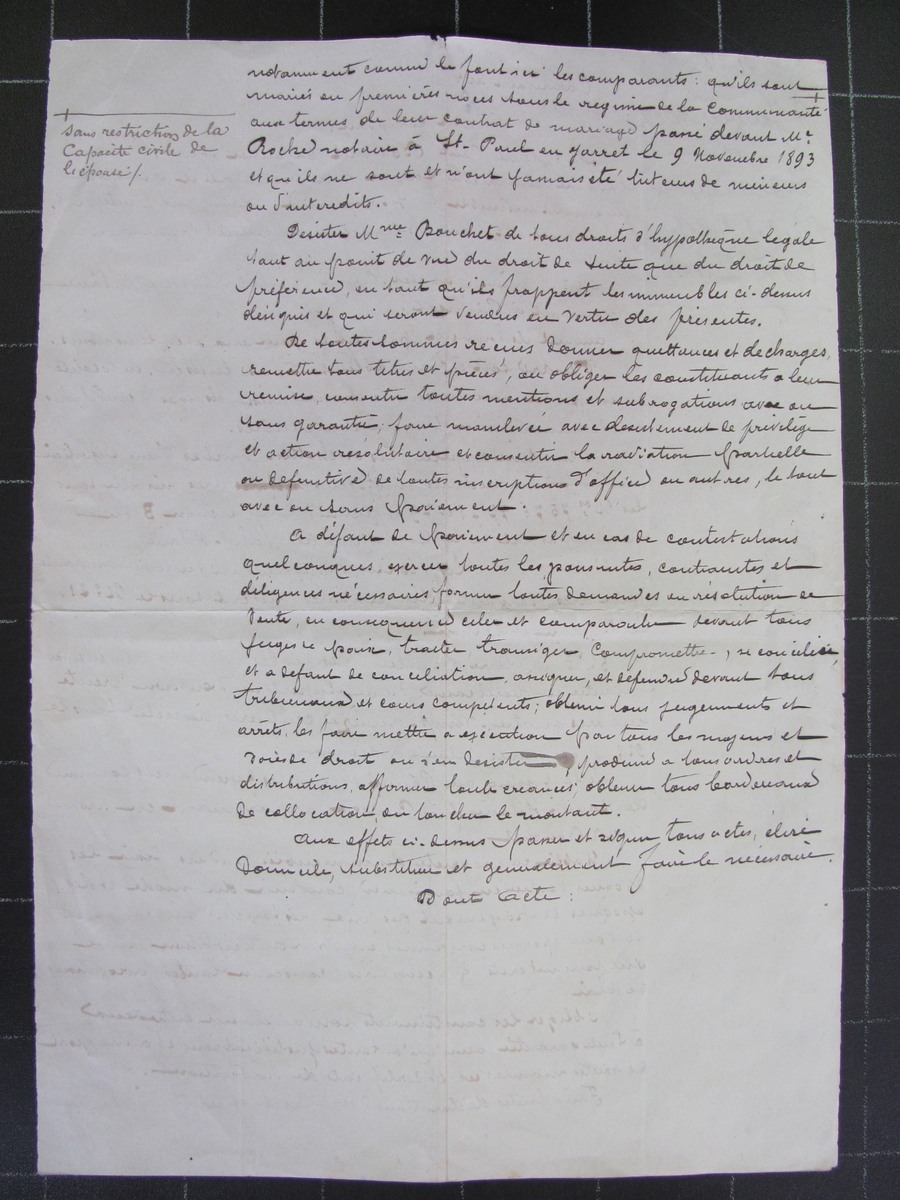 sans restriction de la
Capacité civile de
l'épouse/.
notamment comme le font ici les comparants : qu'ils sont
mariés en premières noces sous le régime de la Communauté
aux termes de leur contrat de mariage passé devant Me
Roche notaire à St-Paul en Jarret le 9 Novembre 1893
et qu'ils ne sont et n'ont jamais été tuteurs de mineurs
ou d'interdits.
Désister Mme Bouchet de tous droits d'hypothèque légale
tant au point de vue du droit de suite que du droit de
préférence, en tant qu'ils frappent les immeubles ci-dessus
désignés et qui seront vendus en vertu des présentes.
De toutes sommes reçues donner quittances et décharges,
remettre tous titres et pièces, ou obliger les constituants à leur
remise, consentir toutes mentions et subrogations avec ou
sans garantie; faire mainlevée avec désistement de privilège
et action résolutoire et consentir la radiation partielle
ou définitive de toutes inscriptions d'office ou autres, le tout
avec ou sans paiement.
A défaut de paiement et en cas de contestations
quelconques, exercer toutes les poursuites, contraintes et
diligences nécessaires, former toutes demandes en résolution de
Vente, en conséquence citer et comparaître devant tous
juges de paix, traiter, transiger, Compromettre, se concilier,
et à défaut de conciliation, assigner, et défendre devant tous
tribunaux et cours compétents; obtenir tous jugements et
arrêts, les faire mettre à exécution par tous les moyens et
voies de droit ou s'en désister, produire à tous ordres et
distributions, affirmer toute créances, obtenir tous bordereaux
de collocation, en toucher le montant.
Aux effets ci-dessus passer et signer tous actes, élire
Domicile, substituer et généralement faire le nécessaire.
Dont Acte :